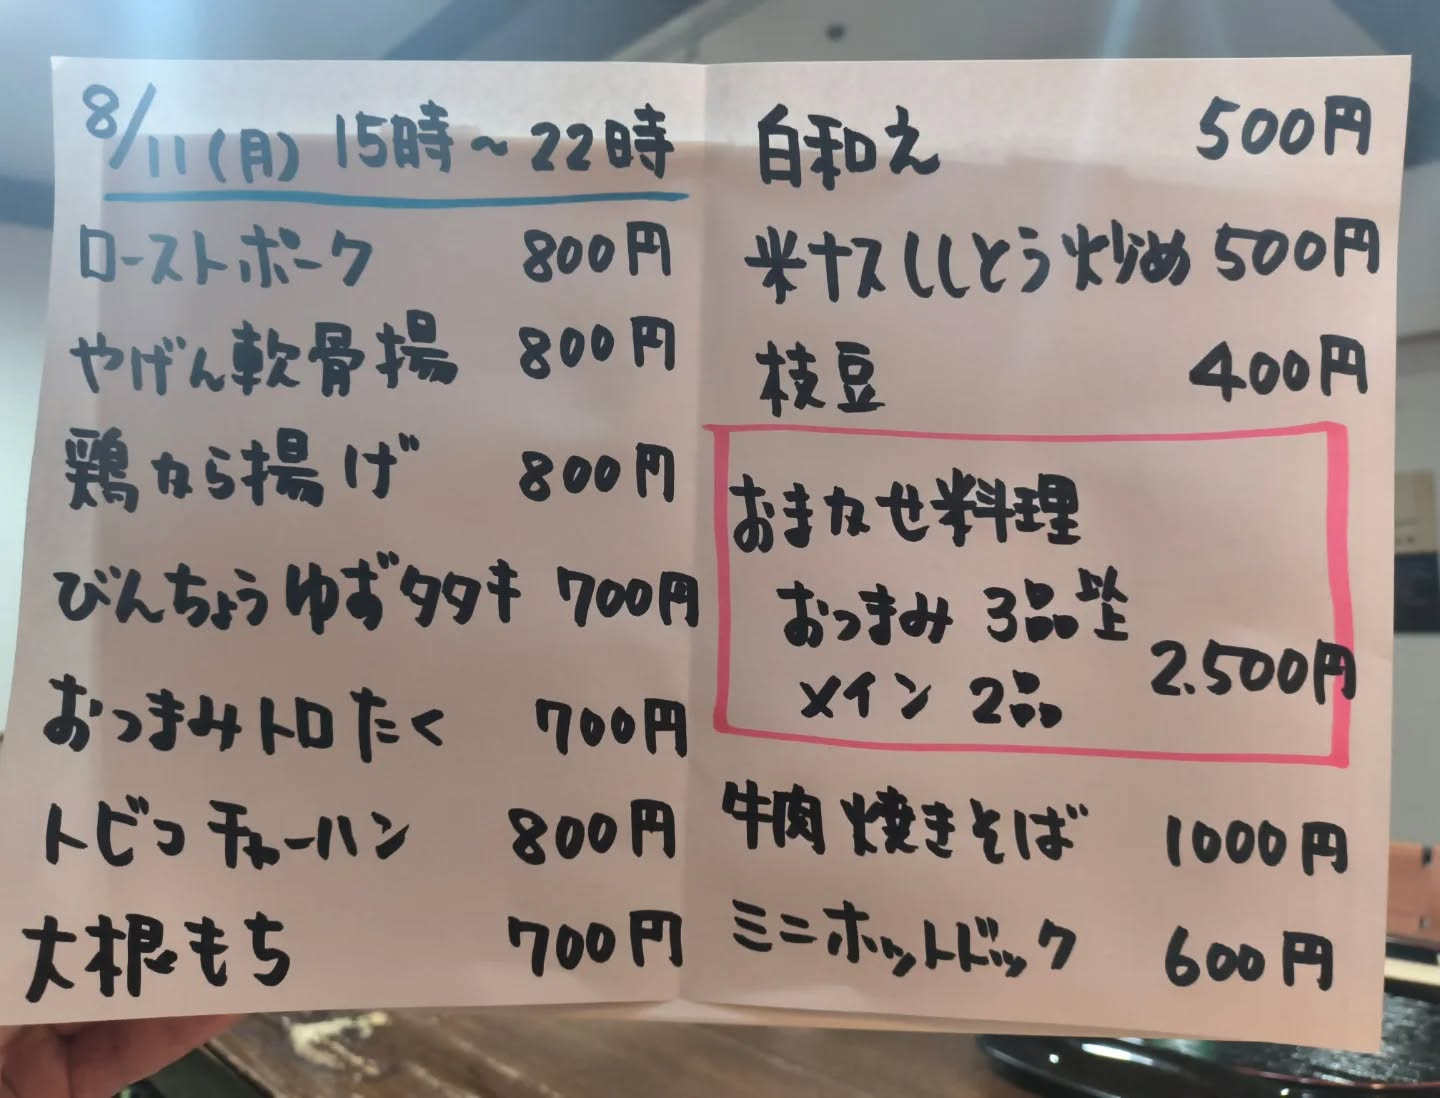 8/11(月) 15時～22時
ローストポーク 800円
やげん軟骨揚 800円
鶏から揚げ 800円
びんちょうゆずタタキ 700円
おつまみトロたく 700円
トビコチャーハン 800円
大根もち 700円
白和え 500円
米ナスししとう炒め 500円
枝豆 400円
おまかせ料理
おつまみ 3品以上
メイン 2品 2.500円
牛肉焼きそば 1000円
ミニホットドック 600円